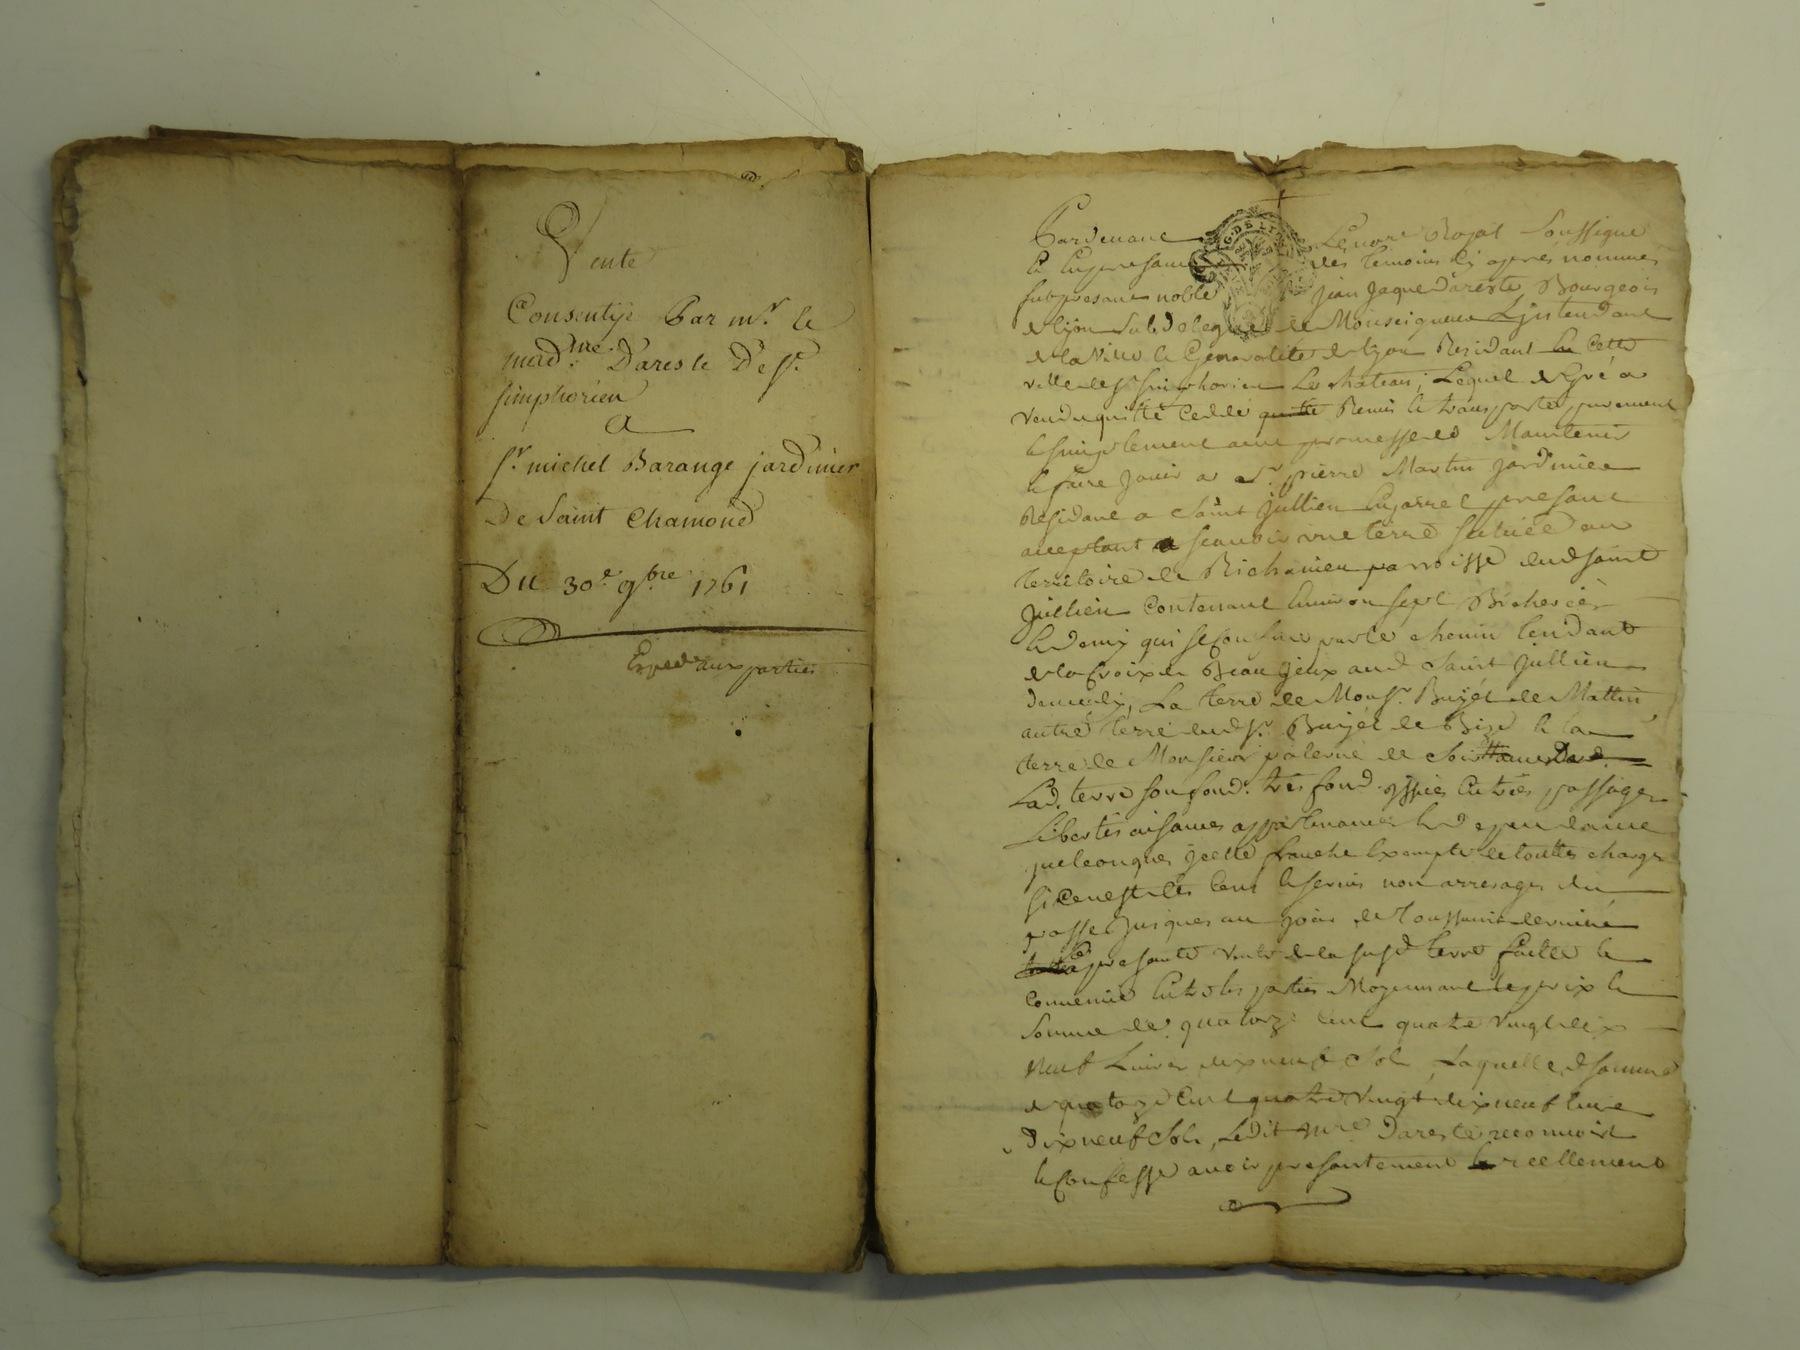 Vente
Consentye Par mr. le
mad.me Dareste De st.
simphorien
A
sr. michel Barange jardinier
De Saint Chamond
Du 30e. 9bre. 1761
Exped aux parties
Pardevant Le nore Rojat Soussigné
le en presance des temoins cy après nommes
fut presant noble jean Jaque Dareste Bourgeois
de lyon Subdelegué de Monseigneur L'jntendant
de la ville le Generalité de lyon Residant en Cette
ville de st. simphorien Le chateau, Lequel de Gré a
vendu quitté Ceddé quitte Remis le transporté purement
le simplement avec promesse de Maintenir
le faire jouir a sr. pierre Martin jardinier
Residant a Saint Jullien present
acceptant a scauoir une terre scituée au
territoire de Richanieu parroisse dud saint
Jullien Contenant Environ sept Bicherées
le demy qui se confine par le chemin tendant
de la Croix de Beaujeux aud Saint Jullien
La terre de Monsr. Buyet de Mattin
autre terre dud sr. Buyet de Bize le la
terre de Monsieur palerne de
Lad. terre son fond. tres fond. entrées passages
Libertés aisances appartenances le dependance
quelconques jcelle franche Exempte de touttes charge
si Ce nest des Cens le servis non arrerages du
passe jusques au jour de Toussaint dernier
presante vente de la susd terre faitte le
Convenue Entre les parties Moyennant le prix le
Somme de quatorze Cent quatre vingt dix
Neuf Livres dix neuf Sols, Laquelle d somme
de quatorze Cent quatre vingt dix neuf livre
Dix neuf Sols, Ledit mre. Dareste reconnoit
le Confesse avoir presantement le reellement